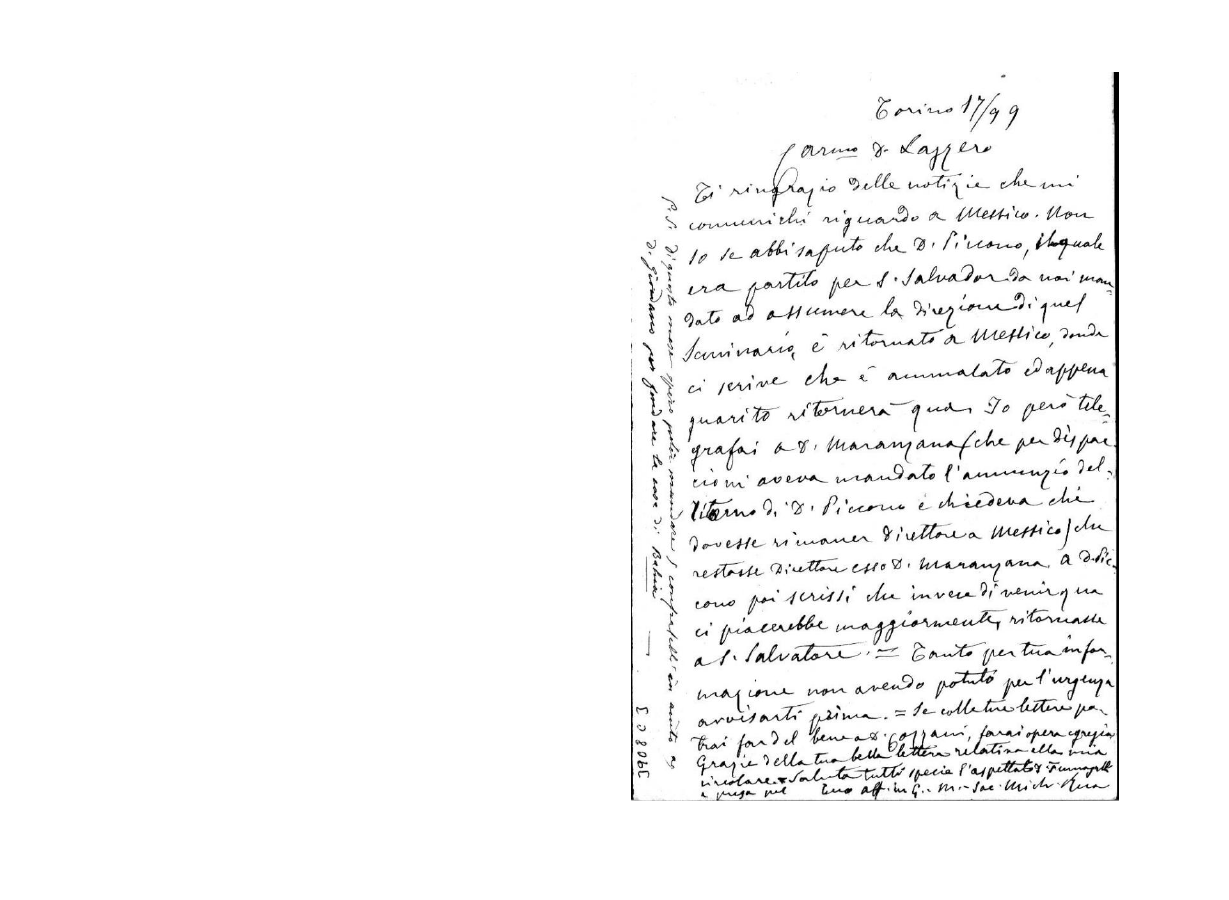 Torino 17/99
Carmo D. Lazzero
Ti ringrazio delle notizie che mi
comunichi riguardo a Messico. Non
so se abbi saputo che D. Piccono, il quale
era partito per S. Salvador da noi man-
dato ad assumere la direzione di quel
Seminario, è ritornato a Messico, donde
ci scrive che è ammalato ed appena
guarito ritornerà qua. Io però tele-
grafai a D. Maranzana (che per dispac-
cioni aveva mandato l'annunzio del
ritorno di D. Piccono e chiedeva chi
dovesse rimaner Direttore a Messico) che
restasse Direttore esso D. Maranzana. A D. Pic-
cono poi scrissi che invece di venir qua
ci piacerebbe maggiormente, ritornasse
a S. Salvatore. = Tanto per tua infor-
mazione non avendo potuto per l'urgenza
avvisarti prima. = Se colle tue lettere po-
trai far del bene a D. Cozzani, farai opera egregia
Grazie della tua bella lettera relativa alla mia
circolare. = Saluta tutti specie l'aspettato D.
e prega pel Tuo aff. in G. M. Sac. Mich. Rua
P. S. Di questo mese spero poter mandare 5 confratelli in aiuto a
D. Giordano per fondare la casa di Bahia
3908 C 3